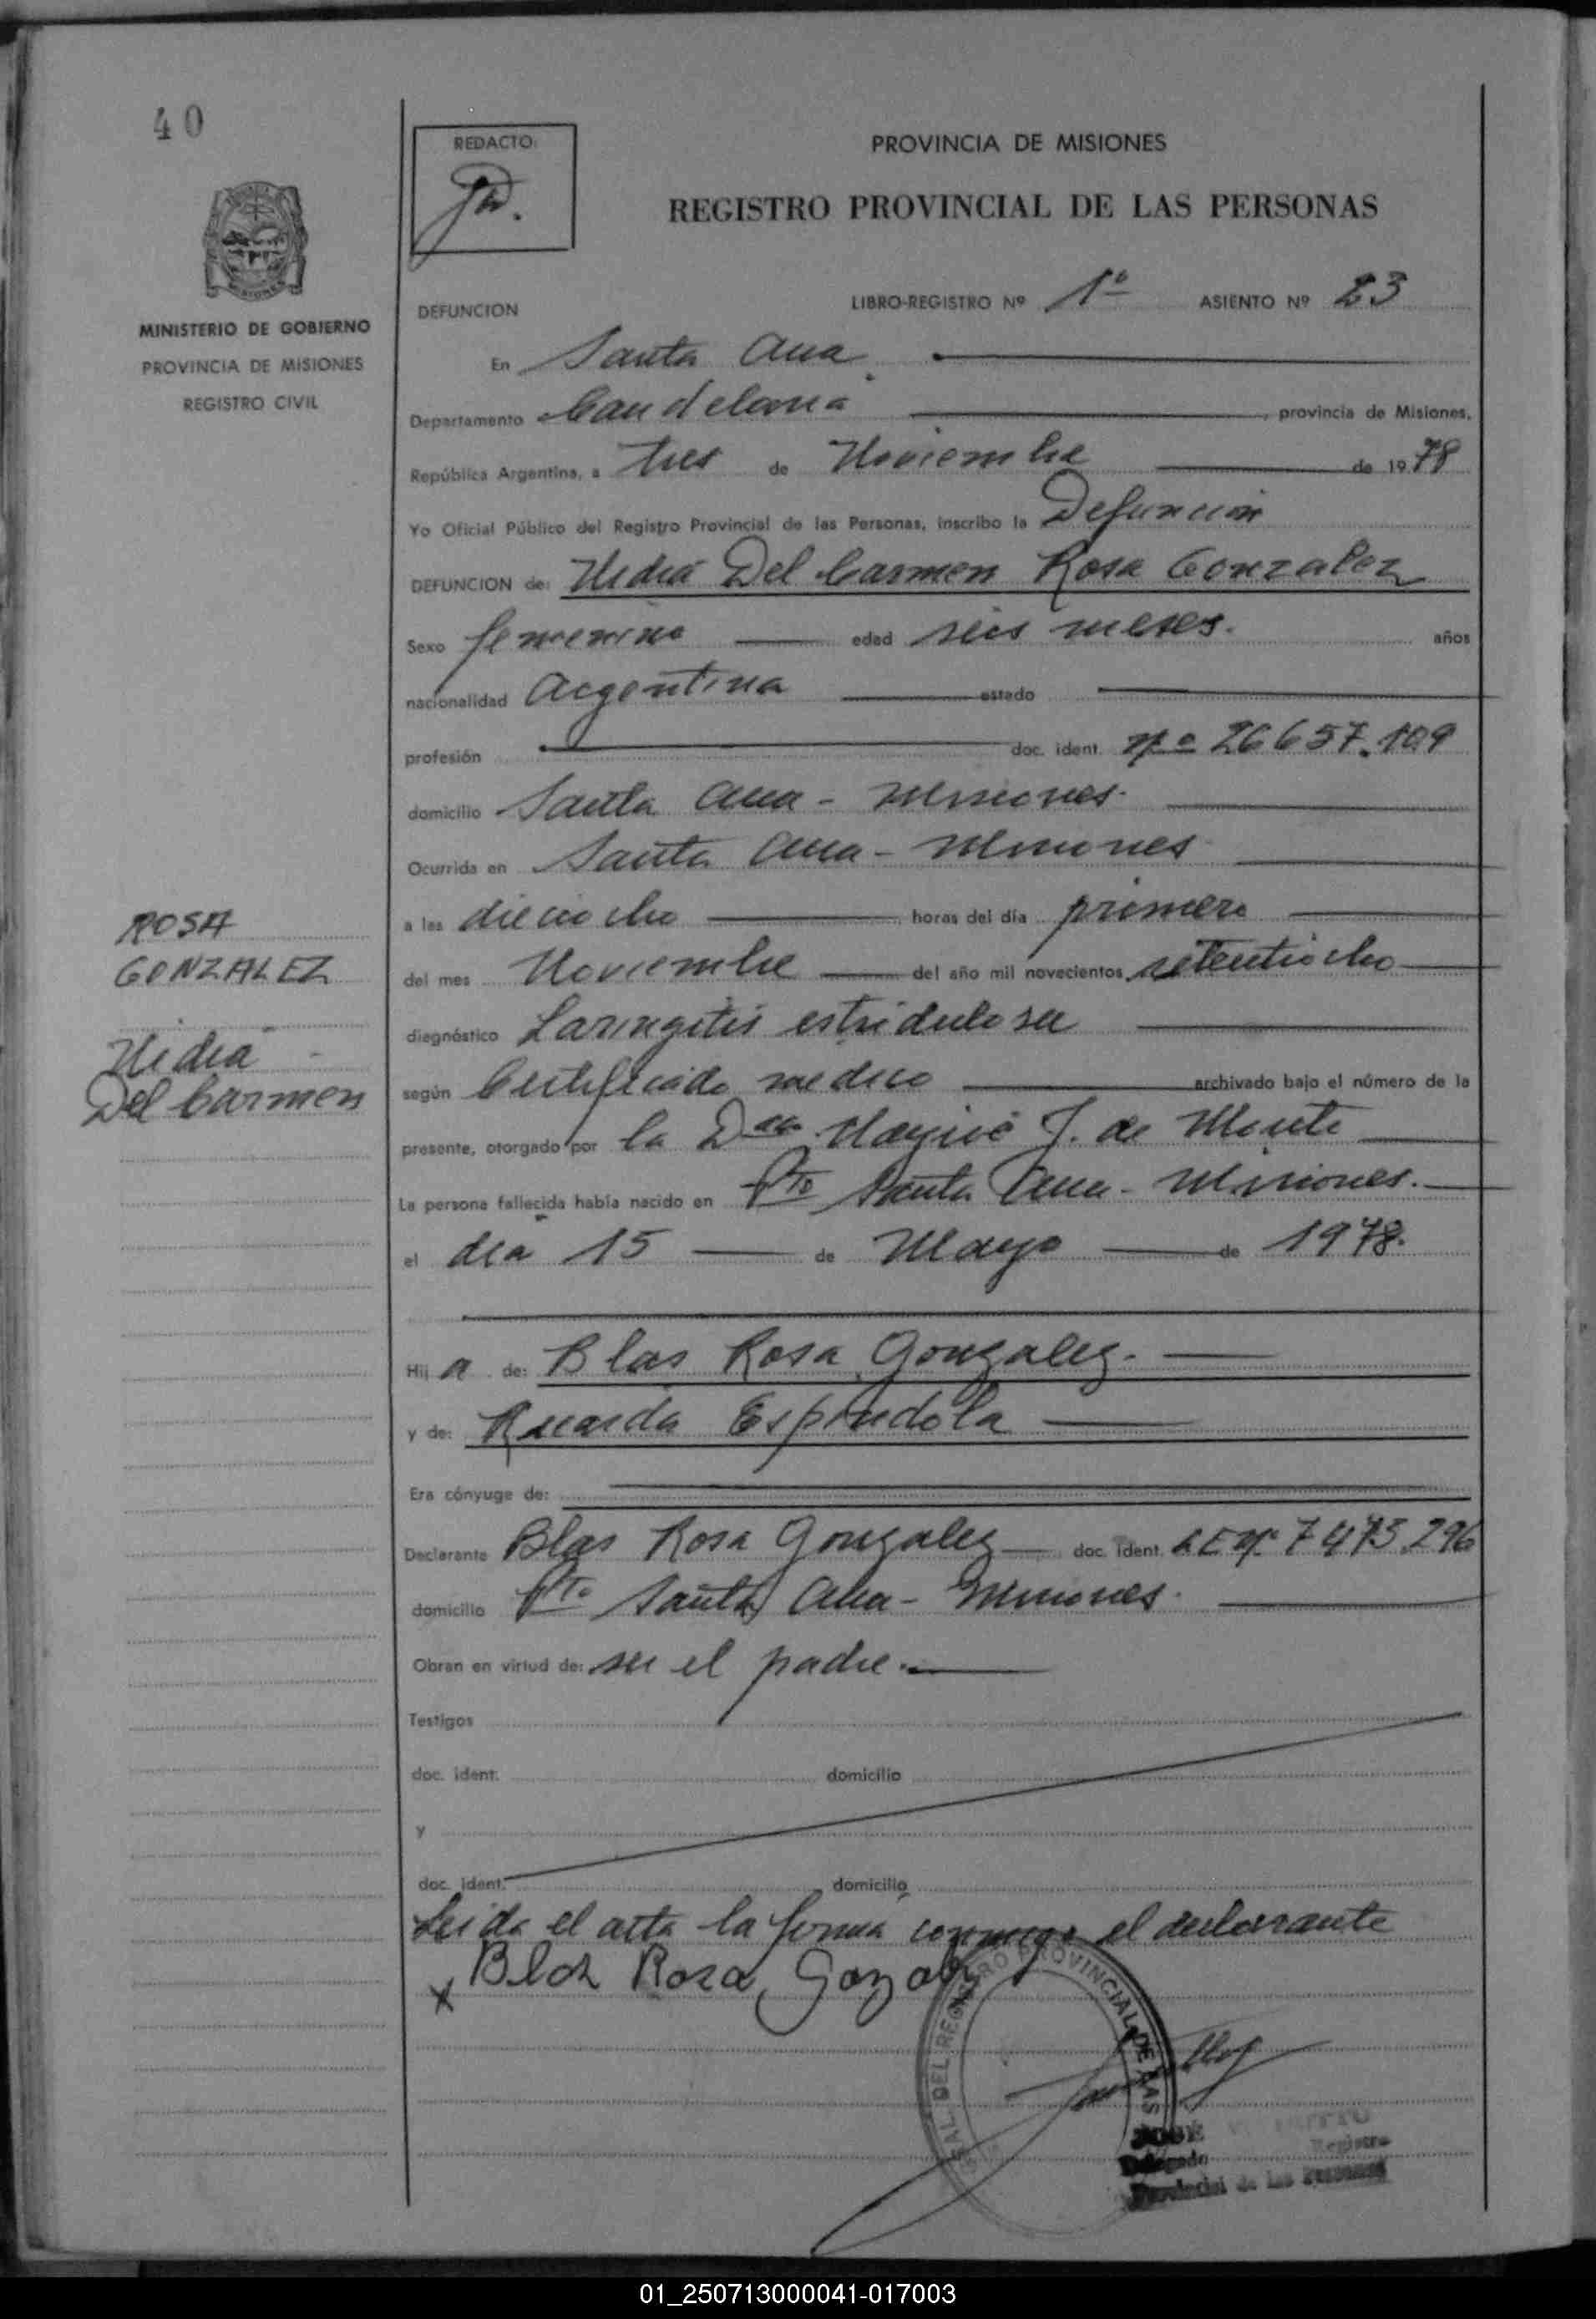 40
REDACTO:
PROVINCIA DE MISIONES
REGISTRO PROVINCIAL DE LAS PERSONAS
MINISTERIO DE GOBIERNO
PROVINCIA DE MISIONES
REGISTRO CIVIL
DEFUNCION LIBRO-REGISTRO Nº 1º ASIENTO Nº 23
En Santa Ana
Departamento Candelaria, provincia de Misiones,
República Argentina, a tres de Noviembre de 1978
Yo Oficial Público del Registro Provincial de las Personas, inscribo la Defunción
DEFUNCION de: Nidia Del Carmen Rosa Gonzalez
Sexo femenino edad seis meses. años
nacionalidad Argentina estado
profesión doc. ident. Nº 26657.109
domicilio Santa Ana - Misiones.
Ocurrida en Santa Ana - Misiones
a las dieciocho horas del día primero
del mes Noviembre del año mil novecientos setentiocho
diagnóstico Laringitis estridulosa
según Certificado medico archivado bajo el número de la
presente, otorgado por la Dra J. de
La persona fallecida había nacido en Pto Santa Ana - Misiones.
el dia 15 de Mayo de 1978.
Hij a de: Blas Rosa Gonzalez.
y de: Ricarda Espindola
Era cónyuge de:
Declarante Blas Rosa Gonzalez doc. ident. LE Nº 7473.296
domicilio Pto Santa Ana - Misiones.
Obran en virtud de: ser el padre.
Testigos
doc. ident. domicilio
y
doc. ident. domicilio
Leida el acta la firma conmigo el declarante
x Blas Rosa
ROSA
GONZALEZ
Nidia
Del Carmen
DEL REGISTRO PROVINCIAL DE LAS
JOSE
Delegado Registro
Provincial de las Personas
01_250713000041-017003